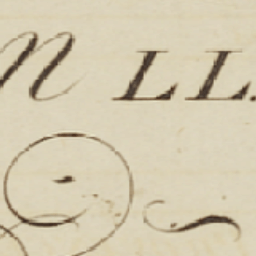 n LL